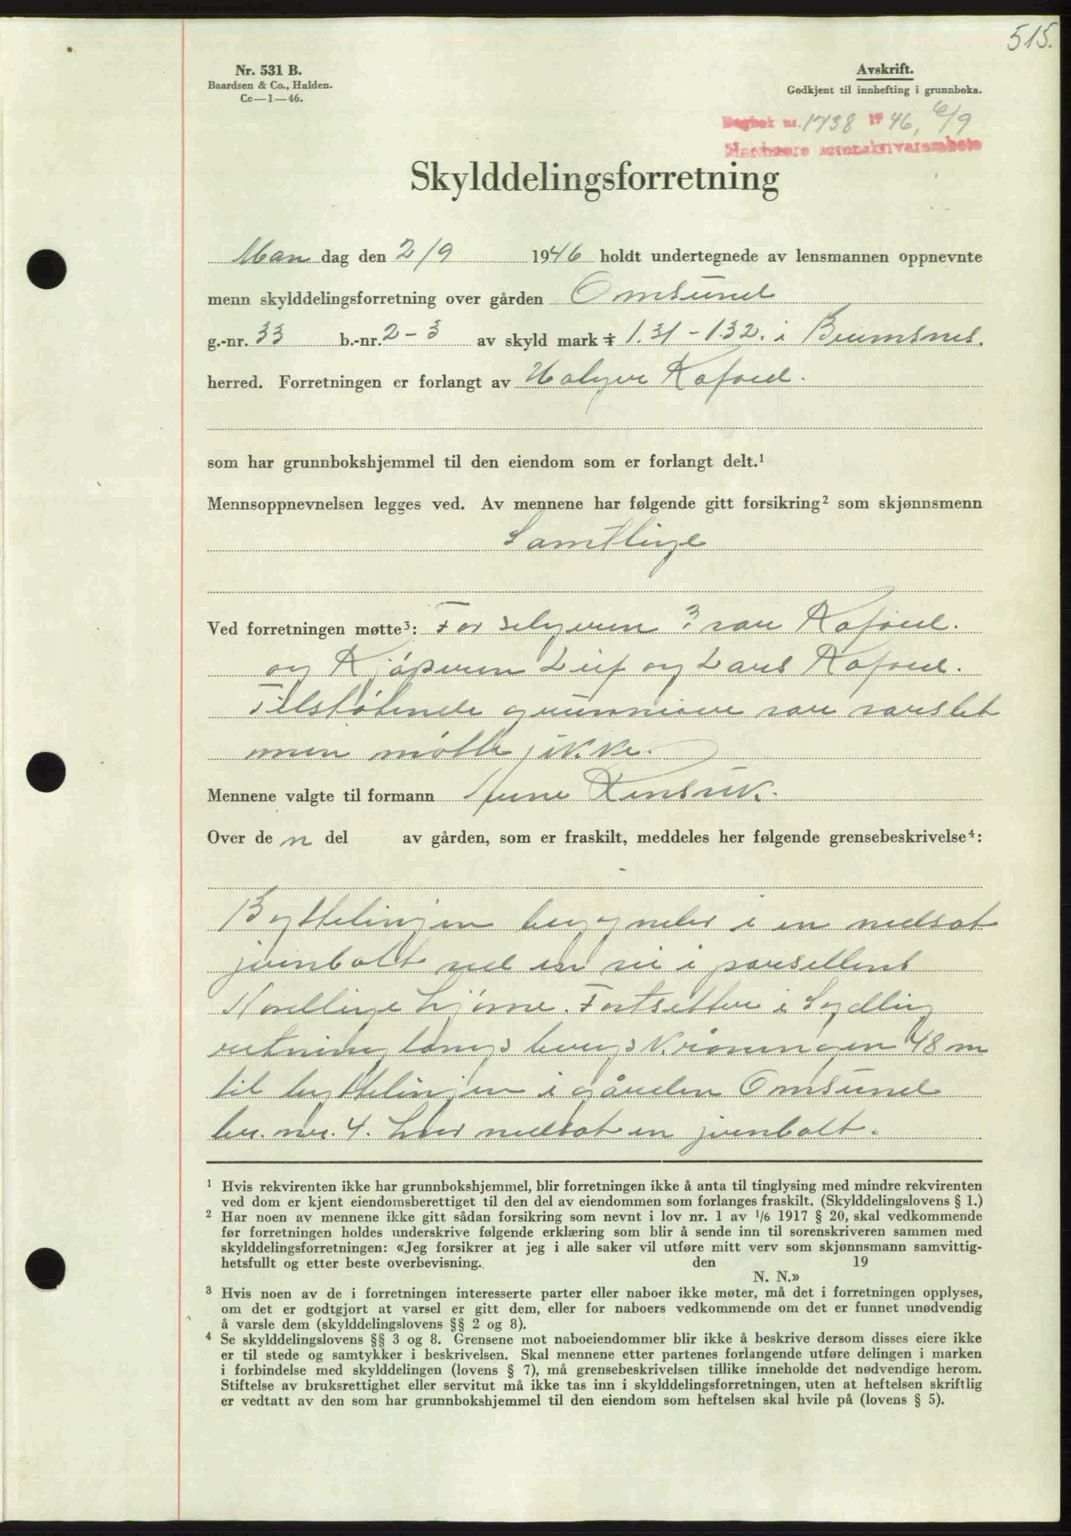 515.
Nr. 531 B.
Baardsen & Co., Halden.
Cc—1—46.
Avskrift.
Godkjent til innhefting i grunnboka.
Dagbok nr. 1738 1946, 6/9
Nordmøre sorenskriverembete
Skylddelingsforretning
Man dag den 2/9 1946 holdt undertegnede av lensmannen oppnevnte
menn skylddelingsforretning over gården Omsund
g.-nr. 33 b.-nr. 2-3 av skyld mark 1.31 - 1.32. i Bremsnes.
herred. Forretningen er forlangt av Holger Kafoed.
som har grunnbokshjemmel til den eiendom som er forlangt delt.¹
Mennsoppnevnelsen legges ved. Av mennene har følgende gitt forsikring² som skjønnsmenn
Samtlige
Ved forretningen møtte³: For selgeren ? var Kafoed.
og Kjøperen Leif og Lars Kafoed.
Tilstøtende grunneiere var varslet
men møtte ikke.
Mennene valgte til formann
Over de n del av gården, som er fraskilt, meddeles her følgende grensebeskrivelse⁴:
Byttelinjen begynder i en nedsat
jernbolt ved en vei i parsellens
Nordlige hjørne. Fortsetter i Sydlig
retning langs berg 48 m
til byttelinjen i gården Omsund
br. nr. 4. hvor nedsat en jernbolt.
¹ Hvis rekvirenten ikke har grunnbokshjemmel, blir forretningen ikke å anta til tinglysing med mindre rekvirenten
ved dom er kjent eiendomsberettiget til den del av eiendommen som forlanges fraskilt. (Skylddelingslovens § 1.)
² Har noen av mennene ikke gitt sådan forsikring som nevnt i lov nr. 1 av 1/6 1917 § 20, skal vedkommende
før forretningen holdes underskrive følgende erklæring som blir å sende inn til sorenskriveren sammen med
skylddelingsforretningen: «Jeg forsikrer at jeg i alle saker vil utføre mitt verv som skjønnsmann samvittig-
hetsfullt og etter beste overbevisning. den 19
N. N.»
³ Hvis noen av de i forretningen interesserte parter eller naboer ikke møter, må det i forretningen opplyses,
om det er godtgjort at varsel er gitt dem, eller for naboers vedkommende om det er funnet unødvendig
å varsle dem (skylddelingslovens §§ 2 og 8).
⁴ Se skylddelingslovens §§ 3 og 8. Grensene mot naboeiendommer blir ikke å beskrive dersom disses eiere ikke
er til stede og samtykker i beskrivelsen. Skal mennene etter partenes forlangende utføre delingen i marken
i forbindelse med skylddelingen (lovens § 7), må grensebeskrivelsen tillike inneholde det nødvendige herom.
Stiftelse av bruksrettighet eller servitut må ikke tas inn i skylddelingsforretningen, uten at heftelsen skriftlig
er vedtatt av den som har grunnbokshjemmel til den eiendom som heftelsen skal hvile på (lovens § 5).